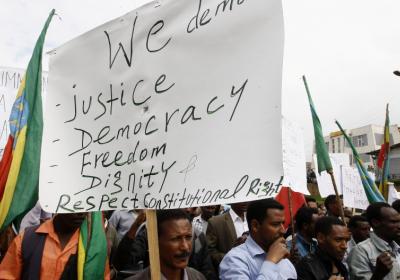 We dem
- justice
- Democracy,
- Freedom
- Dignity &
Respect Constitutional Right